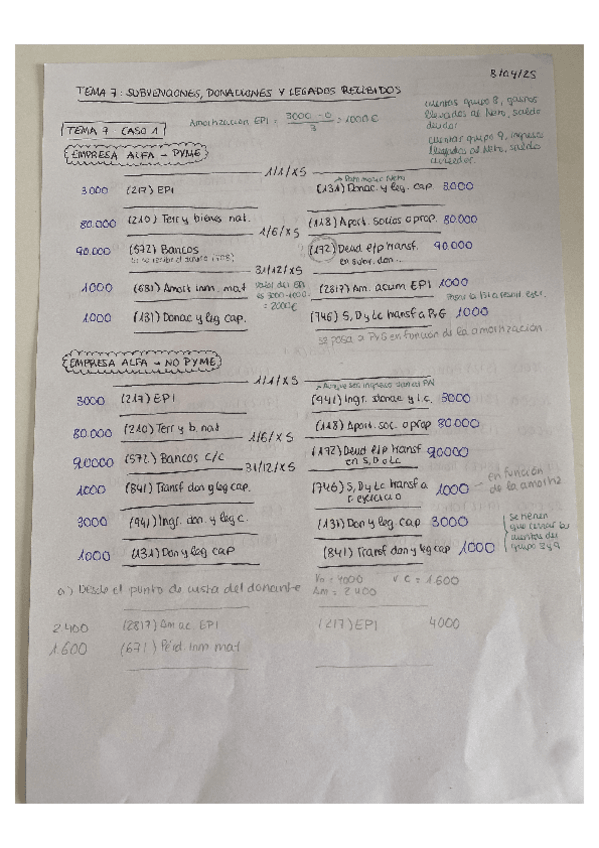 8/04/25
TEMA 7: SUBVENCIONES, DONACIONES Y LEGADOS RECIBIDOS
cuentas grupo 8, gastos
llevados al Neto, saldo
deudor
cuentas grupo 9, ingresos
llegados al Neto, saldo
acreedor.
TEMA 7 CASO 1
Amortización EPI = 3000 - 0 / 3 = 1000€
EMPRESA ALFA → PYME
1/1/X5
3000 (217) EPI (131) Donac. y leg. cap 3.000
80.000 (210) Terr y bienes nat. (118) Aport. socios o prop. 80.000
1/6/X5
90.000 (572) Bancos (172) Deud e/p transf. 90.000
en subv. don...
31/12/X5
1000 (681) Amort inm. mat (2817) Am. acum EPI 1000
valor del EPI
es 3000-1000
= 2000€
1000 (131) Donac y leg cap. (746) S, D y Lc transf a PyG 1000
se pasa a PyG en función de la amortización
EMPRESA ALFA → NO PYME
1/1/X5
3000 (217) EPI (941) Ingr. donac y l.c. 3000
80.000 (210) Terr y b. nat (118) Aport. soc. o prop 80.000
1/6/X5
90000 (572) Bancos c/c (172) Deud e/p transf 90000
en S, D o Lc
31/12/X5
1000 (841) Transf don y leg cap. (746) S, D y Lc transf a 1000
r. ejercicio
en función
de la amortiz
3000 (941) Ingr. don. y leg c. (131) Don y leg cap 3000
1000 (131) Don y leg cap (841) Transf don y leg cap 1000
se tienen
que cerrar las
cuentas del
grupo 8 y 9
a) Desde el punto de vista del donante
Va = 4000 VC = 1.600
Am = 2400
2.400 (2817) Am ac. EPI (217) EPI 4000
1.600 (671) Pérd. inm mat